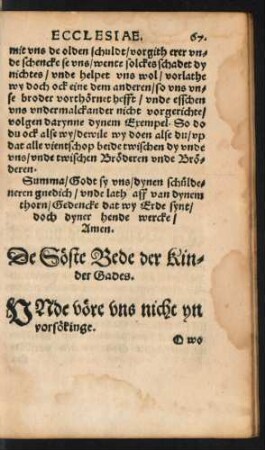 ECCLESIAE. 67.
mit vns de olden schuldt/vorgith erer vn⸗
de schencke se vns/wente solckes schadet dy
nichtes/vnde helpet vns wol/vorlathe
wy doch ock eine dem anderen/so vns vn⸗
se broder vorthörnet hefft/vnde esschen
vns vndermalckander nicht vorgerichte/
volgen darynne dynen Exempel. So do
du ock alse wy/dewile wy doen alse du/vp
dat alle vientschop beide twischen dy vnde
vns/vnde twischen Bröderen vnde Brö⸗
deren.
Summa/Godt sy vns/dynen schülde⸗
neren gnedich/vnde lath aff van dynem
thorn/Gedencke dat wy Erde synt/
doch dyner hende wercke/
Amen.
De Söste Bede der Kin⸗
der Gades.
VNde vöre vns nicht yn
vorsökinge.
O wo